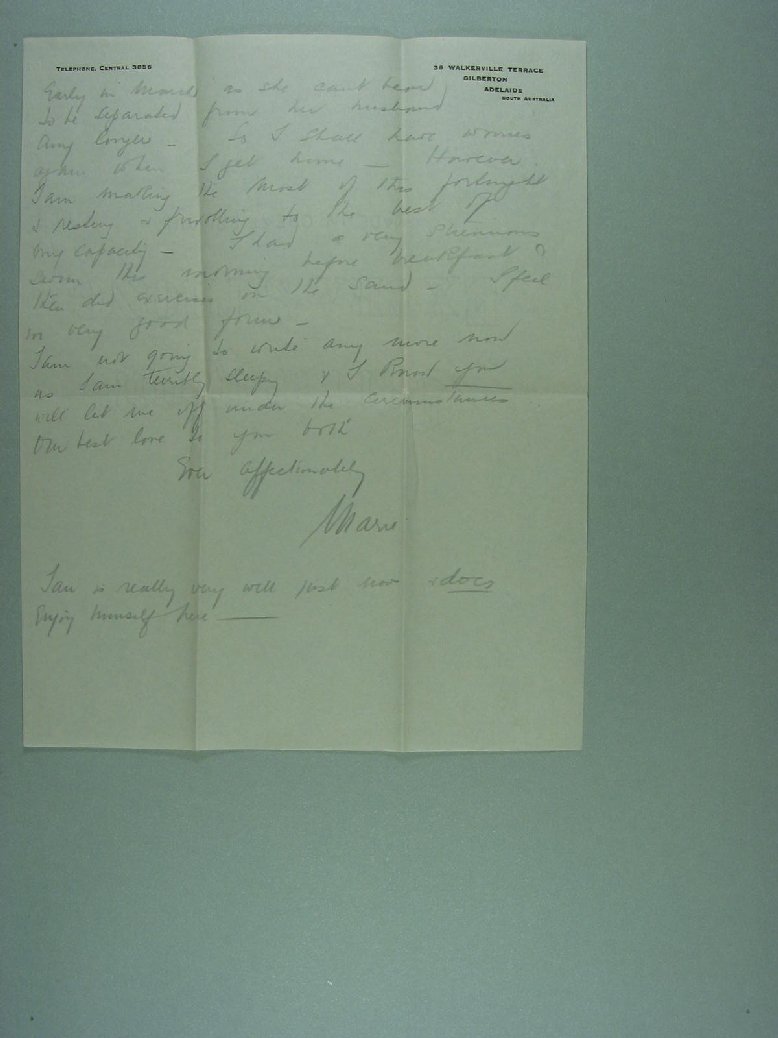 TELEPHONE, CENTRAL 3056
36 WALKERVILLE TERRACE
GILBERTON
ADELAIDE
SOUTH AUSTRALIA
Early in March as she can't bear
to be separated from her husband
any longer - So I shall have worries
again when I get home - However.
I am making the most of this fortnight
& resting & frivolling to the best of
my capacity - I had a very strenuous
swim this morning before breakfast &
then did exercises on the sand - I feel
in very good form -
I am not going to write any more now
as I am terribly sleepy & I know you
will let me off under the circumstances ..
Our best love to you both
Ever affectionately
Marie
Ian is really very well just now & does
Enjoy himself here -